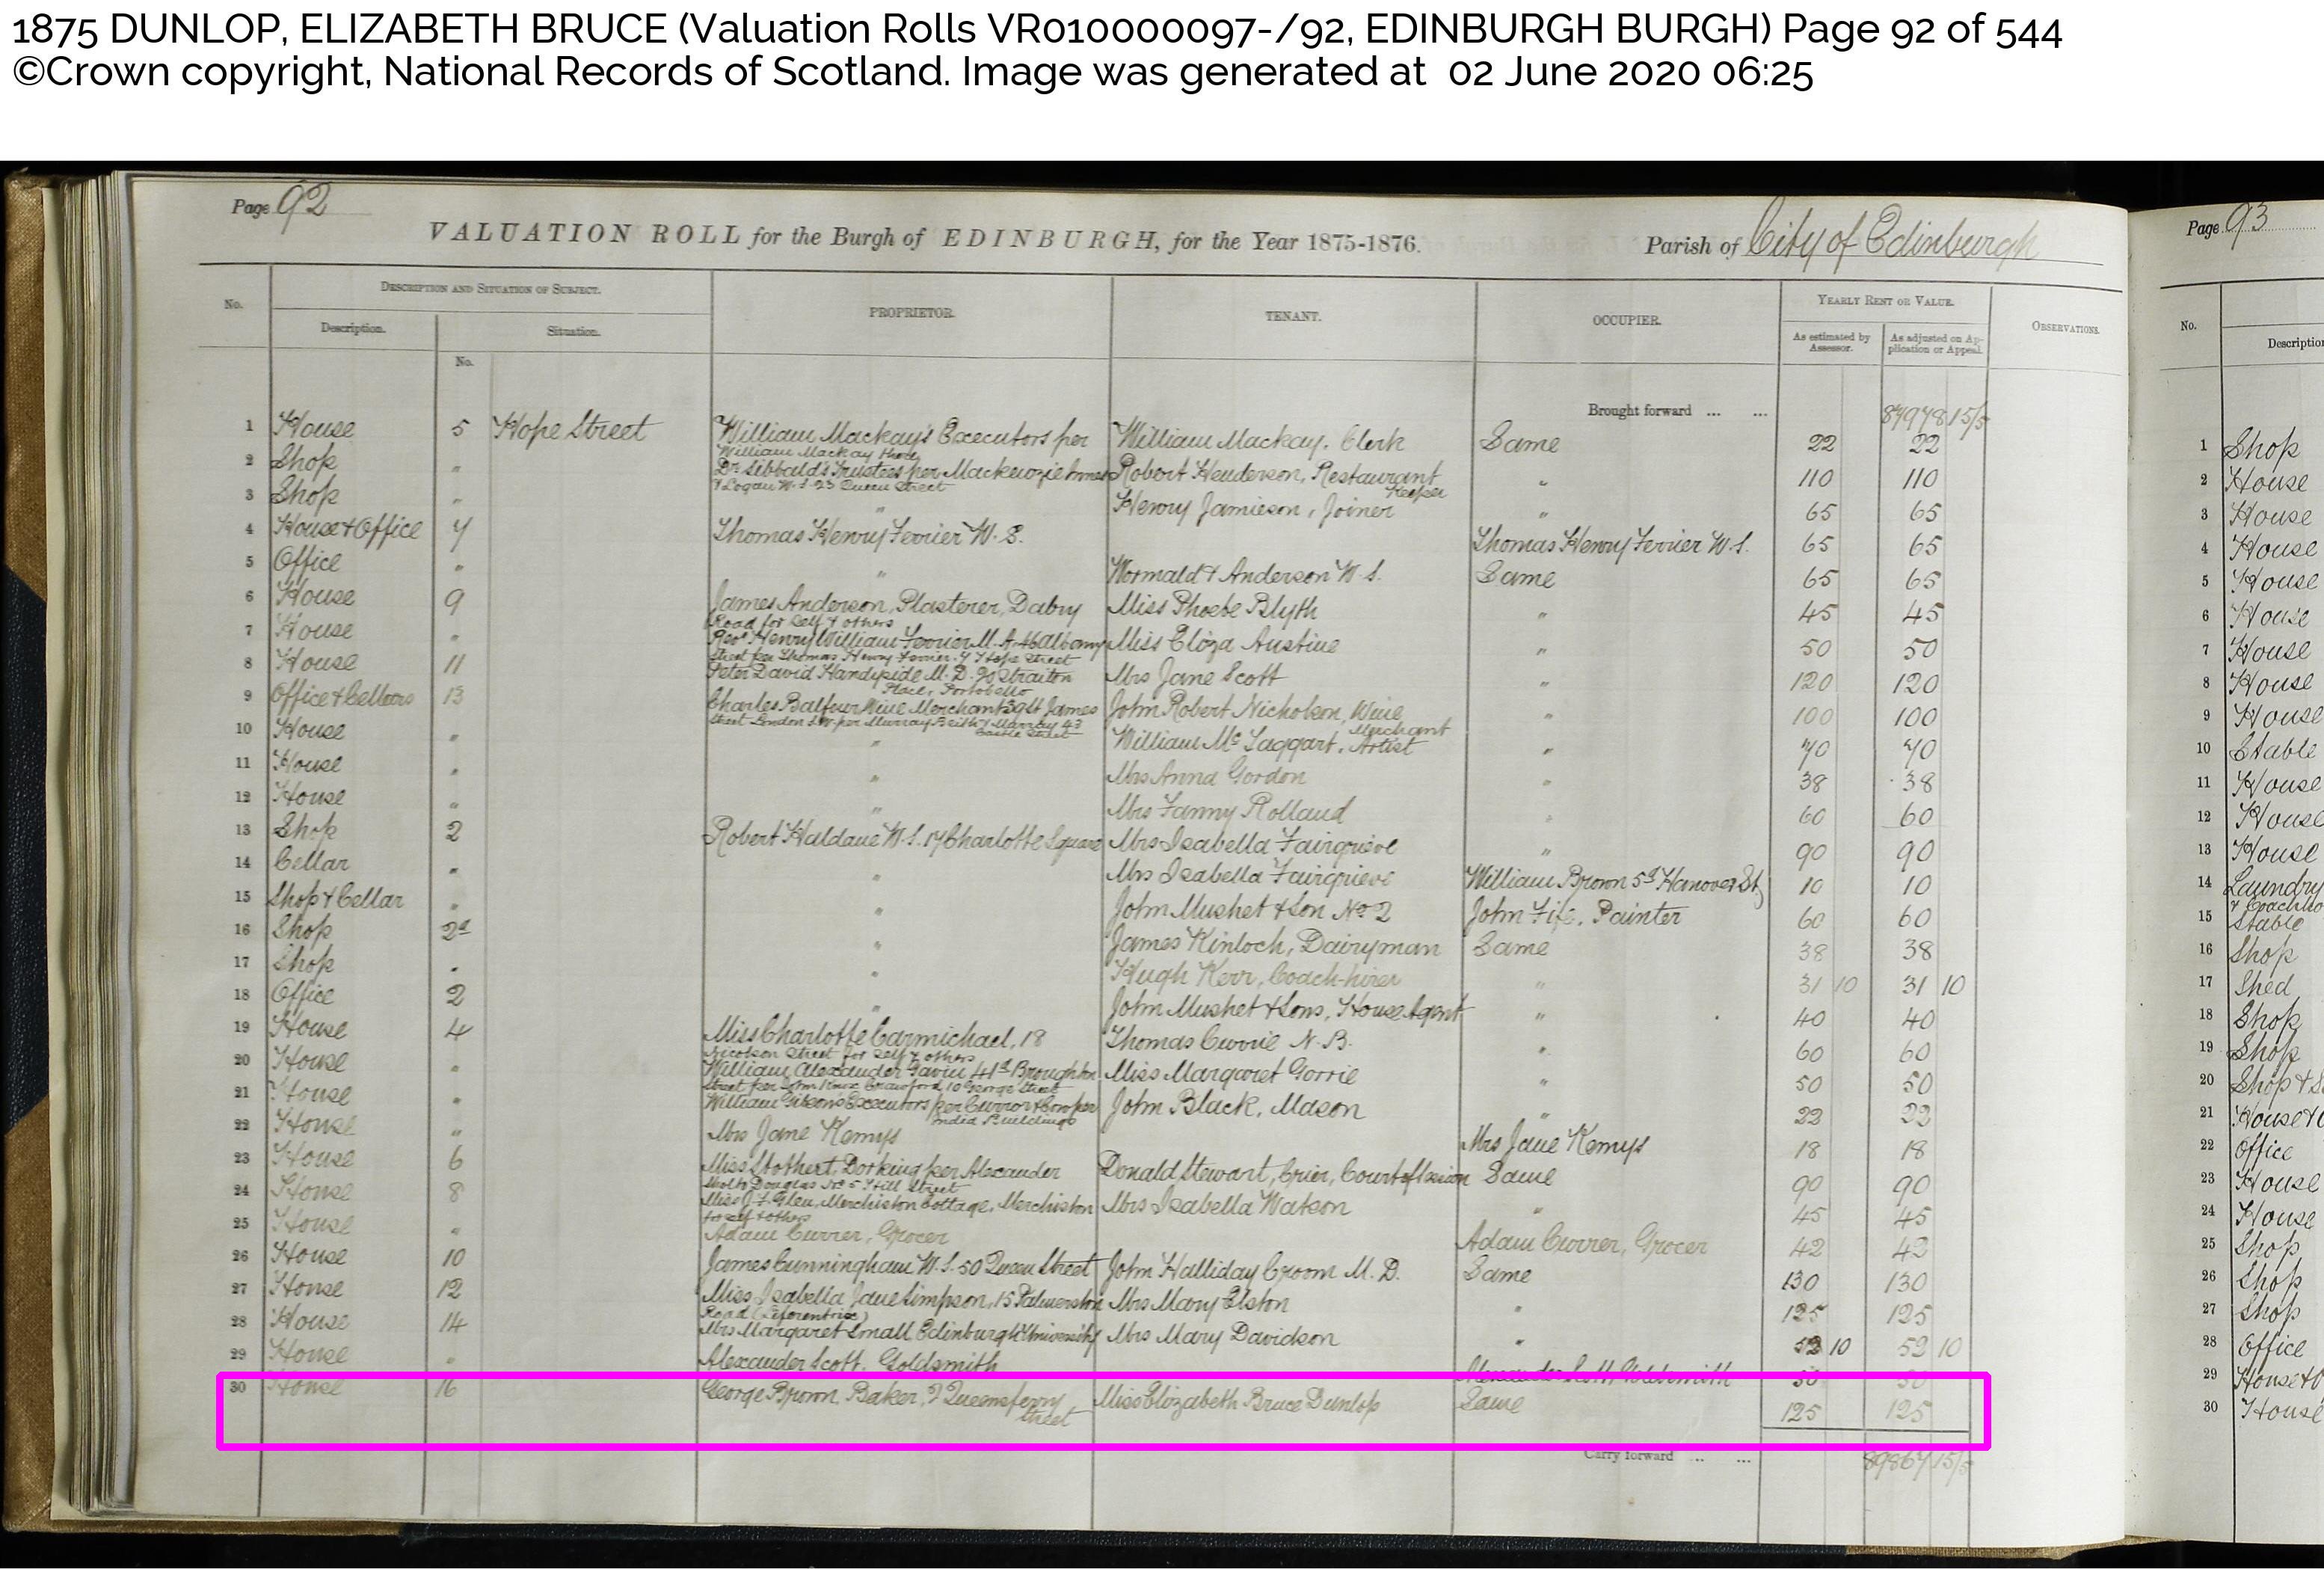 1875 DUNLOP, ELIZABETH BRUCE (Valuation Rolls VR010000097-/92, EDINBURGH BURGH) Page 92 of 544
©Crown copyright, National Records of Scotland. Image was generated at 02 June 2020 06:25
Page 92
VALUATION ROLL for the Burgh of EDINBURGH, for the Year 1875-1876. Parish of City of Edinburgh
No. DESCRIPTION AND SITUATION OF SUBJECT. PROPRIETOR. TENANT. OCCUPIER. YEARLY RENT OR VALUE. OBSERVATIONS.
Description. Situation. As estimated by Assessor. As adjusted on Application or Appeal.
No.
Brought forward ... ... 87978 15/5
1 House 5 Hope Street William Mackay's Executors per William Mackay there William Mackay, Clerk Same 22 22
2 Shop " Dr Sibbald's Trustees per Mackenzie Innes & Logan W.S. 23 Queen Street Robert Henderson, Restaurant Keeper " 110 110
3 Shop " " Henry Jamieson, Joiner " 65 65
4 House & Office 7 Thomas Henry Ferrier W.S. Thomas Henry Ferrier W.S. 65 65
5 Office " " Wormald & Anderson W.S. Same 65 65
6 House 9 James Anderson, Plasterer, Dalry Road for Self & others Miss Phoebe Blyth " 45 45
7 House " Revd Henry William Ferrier M.A. Albany Street per Thomas Henry Ferrier, 7 Hope Street Miss Eliza Austine " 50 50
8 House 11 Peter David Handyside M.D. Straiton Place, Portobello Mrs Jane Scott " 120 120
9 Office & Cellars 13 Charles Balfour Wine Merchant 39 St James Street London S.W. per Murray Beith & Murray 43 Castle Street John Robert Nicholson, Wine Merchant " 100 100
10 House " " William McTaggart, Artist " 70 70
11 House " " Mrs Anna Gordon " 38 38
12 House " " Mrs Fanny Rolland " 60 60
13 Shop 2 Robert Haldane W.S. 17 Charlotte Square Mrs Isabella Fairgrieve " 90 90
14 Cellar " " Mrs Isabella Fairgrieve William Brown 5a Hanover St 10 10
15 Shop & Cellar " " John Mushet & Son No 2 John Fife, Painter 60 60
16 Shop 2a " James Kinloch, Dairyman Same 38 38
17 Shop " " Hugh Kerr, Coach-hirer " 31 10 31 10
18 Office 2 " John Mushet & Sons, House Agent " 40 40
19 House 4 Miss Charlotte Carmichael, 18 Nicolson Street for Self & others Thomas Currie N.B. " 60 60
20 House " William Alexander Gavin 41a Broughton Street per John Knox Crawford, 10 George Street Miss Margaret Gorrie " 50 50
21 House " William Gibson's Executors per Curror & Cowper India Buildings John Black, Mason " 22 22
22 House " Mrs Jane Kemys Mrs Jane Kemys 18 18
23 House 6 Miss Stothert, Dorking per Alexander Sholto Douglas No 5 Hill Street Donald Stewart, Crier, Court of Session Same 90 90
24 House 8 Miss J. F. Glen, Merchiston Cottage, Merchiston for self & others Mrs Isabella Watson " 45 45
25 House " Adam Currer, Grocer Adam Currer, Grocer 42 42
26 House 10 James Cunningham W.S. 50 Queen Street John Halliday Croom M.D. Same 130 130
27 House 12 Miss Isabella Jane Simpson, 15 Palmerston Road (Liferentrix) Mrs Mary Elston " 125 125
28 House 14 Mrs Margaret Small Edinburgh University Mrs Mary Davidson " 52 10 52 10
29 House " Alexander Scott, Goldsmith Alexander Scott, Goldsmith 30 30
30 House 16 George Brown, Baker, 7 Queensferry Street Miss Elizabeth Bruce Dunlop Same 125 125
Carry forward ... ... 89867 15/5
Page 93
No. Description
1 Shop
2 House
3 House
4 House
5 House
6 House
7 House
8 House
9 House
10 Stable
11 House
12 House
13 House
14 Laundry
15 Stable
16 Shop
17 Shed
18 Shop
19 Shop
20 Shop &
21 House &
22 Office
23 House
24 House
25 Shop
26 Shop
27 Shop
28 Office
29 House &
30 House